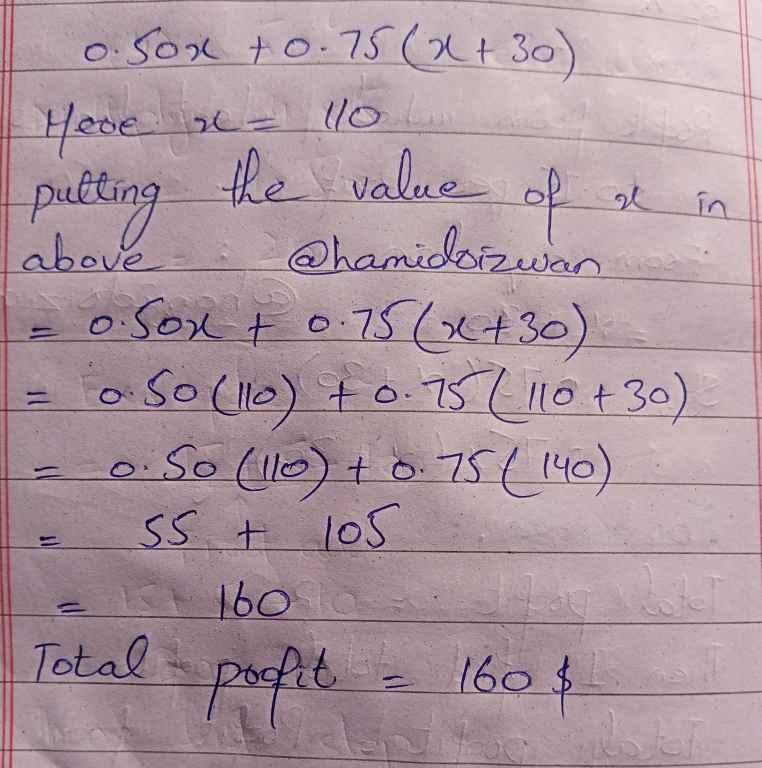 0.50x + 0.75(x+30)
Here x = 110
putting the value of x in
above @hamidrizwan
= 0.50x + 0.75(x+30)
= 0.50(110) + 0.75(110+30)
= 0.50(110) + 0.75(140)
= 55 + 105
= 160
Total profit = 160$